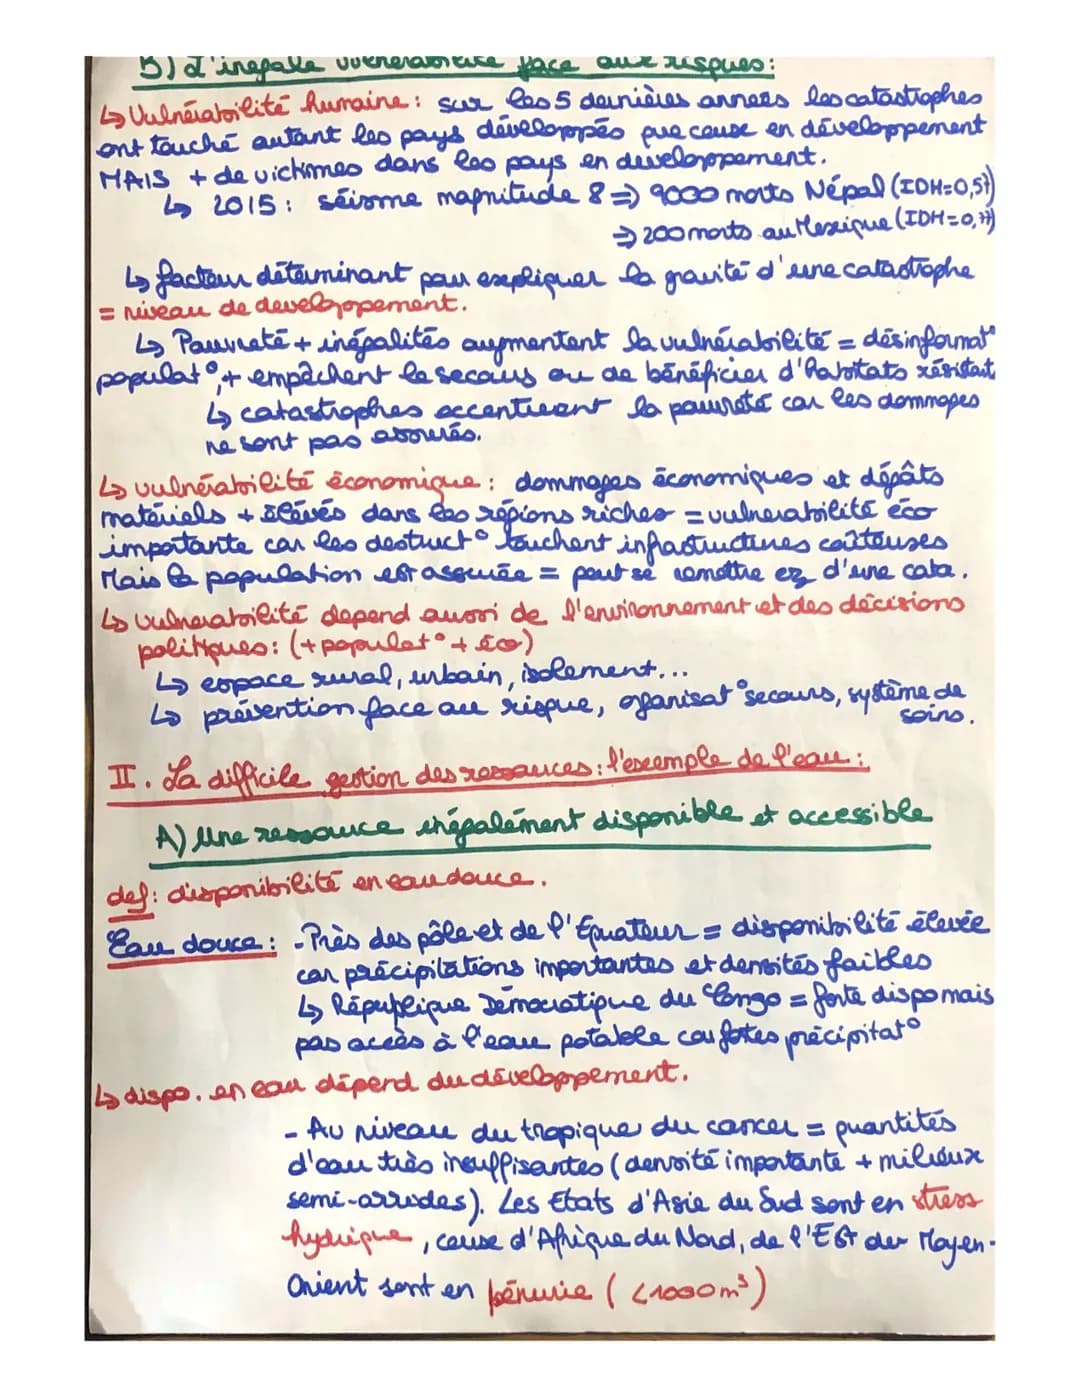 B) L'inégale vulnérabilité face aux risques:
↳ Vulnérabilité humaine: sur les 5 dernières annees les catastrophes
ont touché autant les pays développés que ceux en développement
MAIS + de victimes dans les pays en developpement.
↳ 2015: séisme magnitude 8 => 9000 morts Népal (IDH=0,57)
=> 200 morts au Mexique (IDH=0,77)
↳ facteur déterminant pour expliquer la gravité d'une catastrophe
= niveau de developpement.
↳ Pauvreté + inégalités augmentent la vulnérabilité = désinformat°
populat°, + empêchent le secours ou de bénéficier d'habitats résistant
↳ catastrophes accentuent la pauvreté car les dommages
ne sont pas assurés.
↳ vulnérabilité économique: dommages économiques et dégâts
matériels + élévés dans les régions riches = vulnerabilité éco
importante car les destruct° touchent infrastructures coûteuses
Mais la population est assurée = peut se remettre ez d'une cata.
↳ vulnerabilité depend aussi de l'environnement et des décisions
politiques: (+ populat° + éco)
↳ espace rural, urbain, isolement...
↳ prévention face au risque, oganisat° secours, système de
soins.
II. La difficile gestion des ressources: l'exemple de l'eau:
A) Une ressource inégalément disponible et accessible
def: disponibilité en eau douce.
Eau douce: - Près des pôle et de l'Equateur = disponibilité élevée
car précipitations importantes et densités faibles
↳ République Démocratique du Congo = forte dispo mais
pas accès à l'eau potable car fotes précipitat°
↳ dispo. en eau dépend du développement.
- Au niveau du tropique du cancer = quantités
d'eau très insuffisantes (densité importante + milieux
semi-arrides). Les Etats d'Asie du Sud sont en stress
hydrique, ceux d'Afrique du Nord, de l'Est du Moyen-
Orient sont en pénurie (<1000m³)